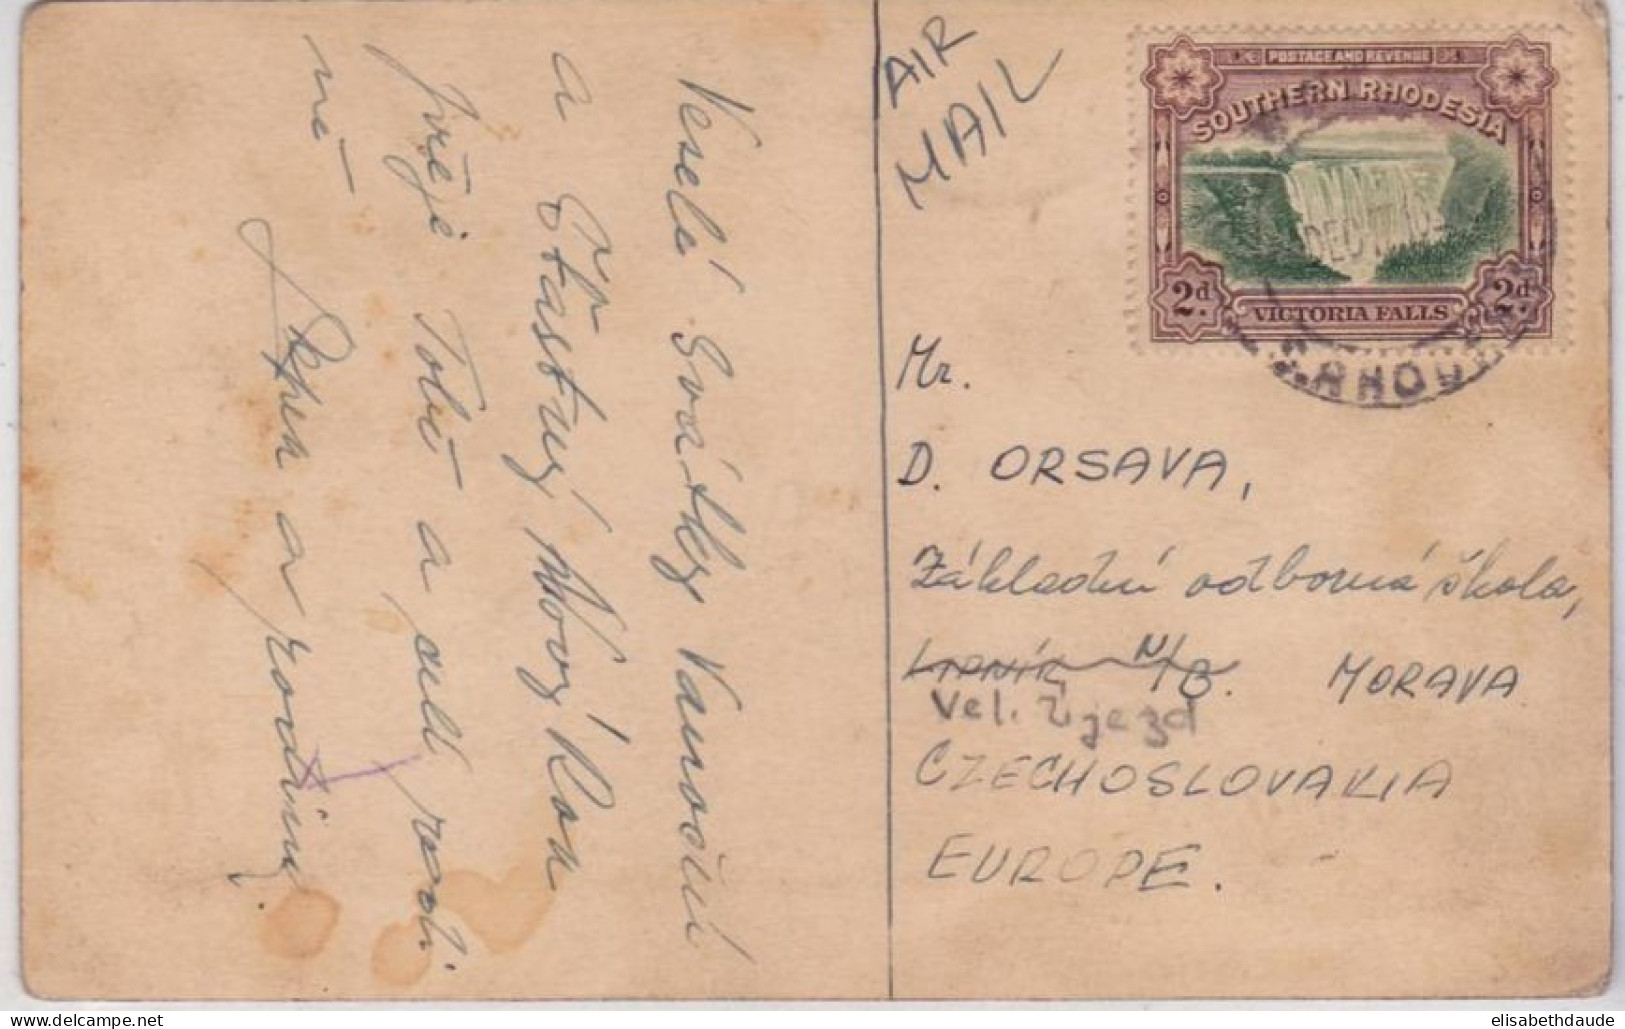 Veselé Svátky Vánoční
a Šťastný Nový Rok
přeje Tobě a celé rodi-
ně —
a rodina.
AIR
MAIL
POSTAGE AND REVENUE
SOUTHERN RHODESIA
DEC
2d. VICTORIA FALLS 2d.
S. RHODE
Mr.
D. ORSAVA,
Základní odborná škola,
LIPNÍK N/B. MORAVA
Vel. Újezd
CZECHOSLOVAKIA
EUROPE.
©www.delcampe.net
elisabethdaude